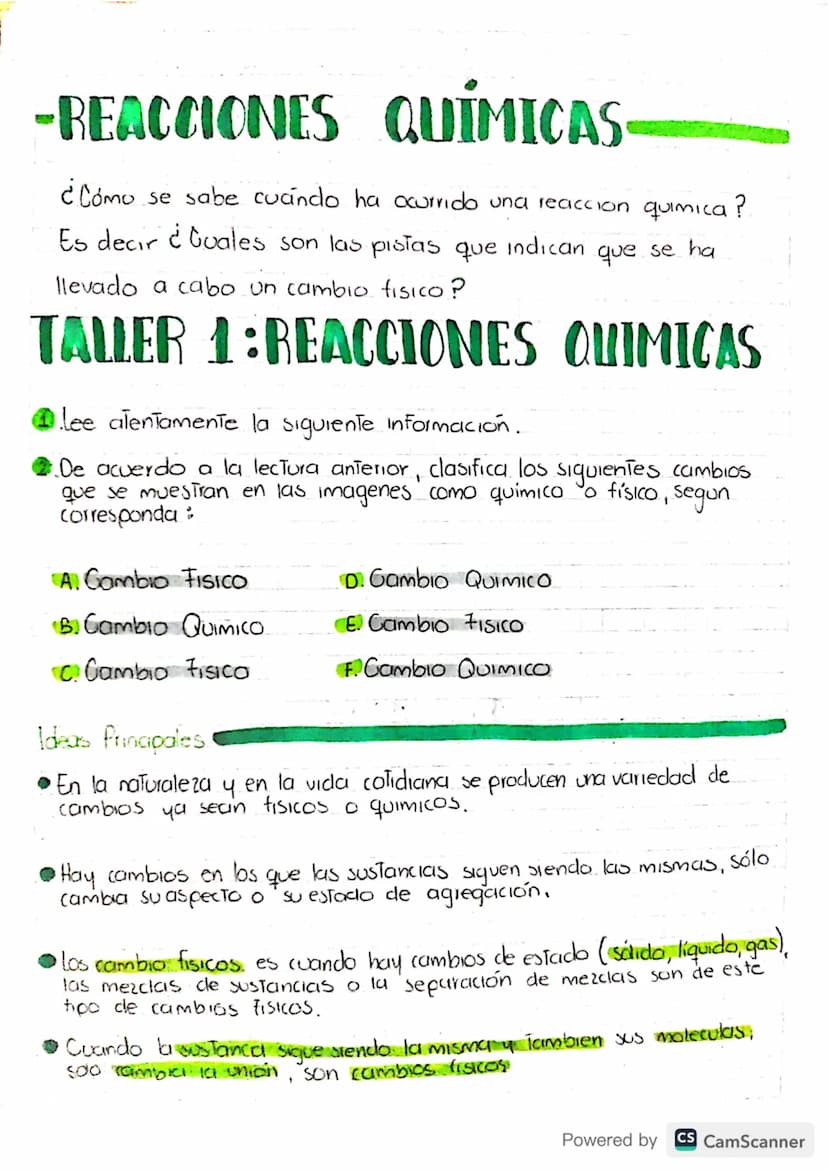 -REACCIONES QUÍMICAS-
¿Cómo se sabe cuándo ha ocurrido una reaccion quimica?
Es decir ¿Cuales son las pistas que indican que se ha
llevado a cabo un cambio fisico?
TALLER 1:REACCIONES QUIMICAS
1.Lee atentamente la siguiente información.
2.De acuerdo a la lectura anterior, clasifica los siguientes cambios
que se muestran en las imagenes como químico o físico, segun
corresponda:
A. Cambio Fisico
D. Cambio Quimico
B. Cambio Quimico
E. Cambio fisico
C. Cambio fisico
F. Cambio Quimico
Ideas Principales
• En la naturaleza y en la vida cotidiana se producen una variedad de
cambios ya sean fisicos o quimicos.
• Hay cambios en los que las sustancias siguen siendo las mismas, sólo
cambia su aspecto o su estado de agregación.
• Los cambio fisicos. es cuando hay cambios de estado (sólido, líquido, gas),
las mezclas de sustancias o la separación de mezclas son de este
tipo de cambios fisicos.
• Cuando la sustancia sigue siendo la misma y tambien sus moleculas,
solo cambia la unión, son cambios fisicos
Powered by CS CamScanner